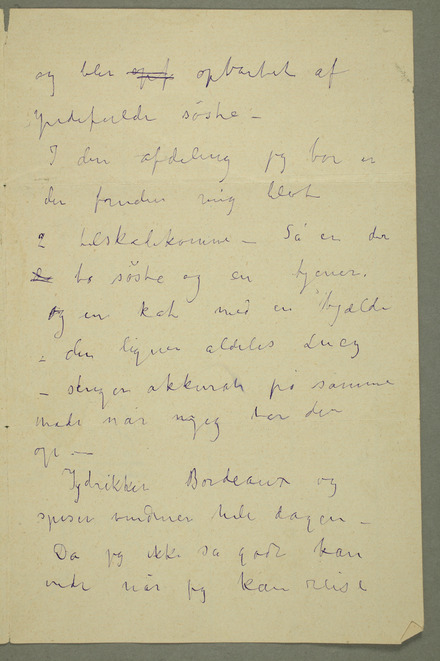 og blev opvartet af
ydefulde søstre –
I den afdeling jeg bor er
der foruden mig blot
2 tilskadekomne – Så er der
to søstre og en tjener.
og en kat med en bjælde
– den ligner aldeles Lucy
– skriger akkurat på samme
måde når tager den
op. –
Jeg drikker Bordeaux og
spiser vindruer hele dagen –
Da jeg ikke så godt kan
vide når jeg kan reise